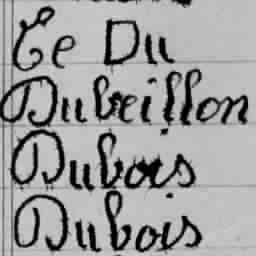 Ce Du
Dubeillon
Dubois
Dubois